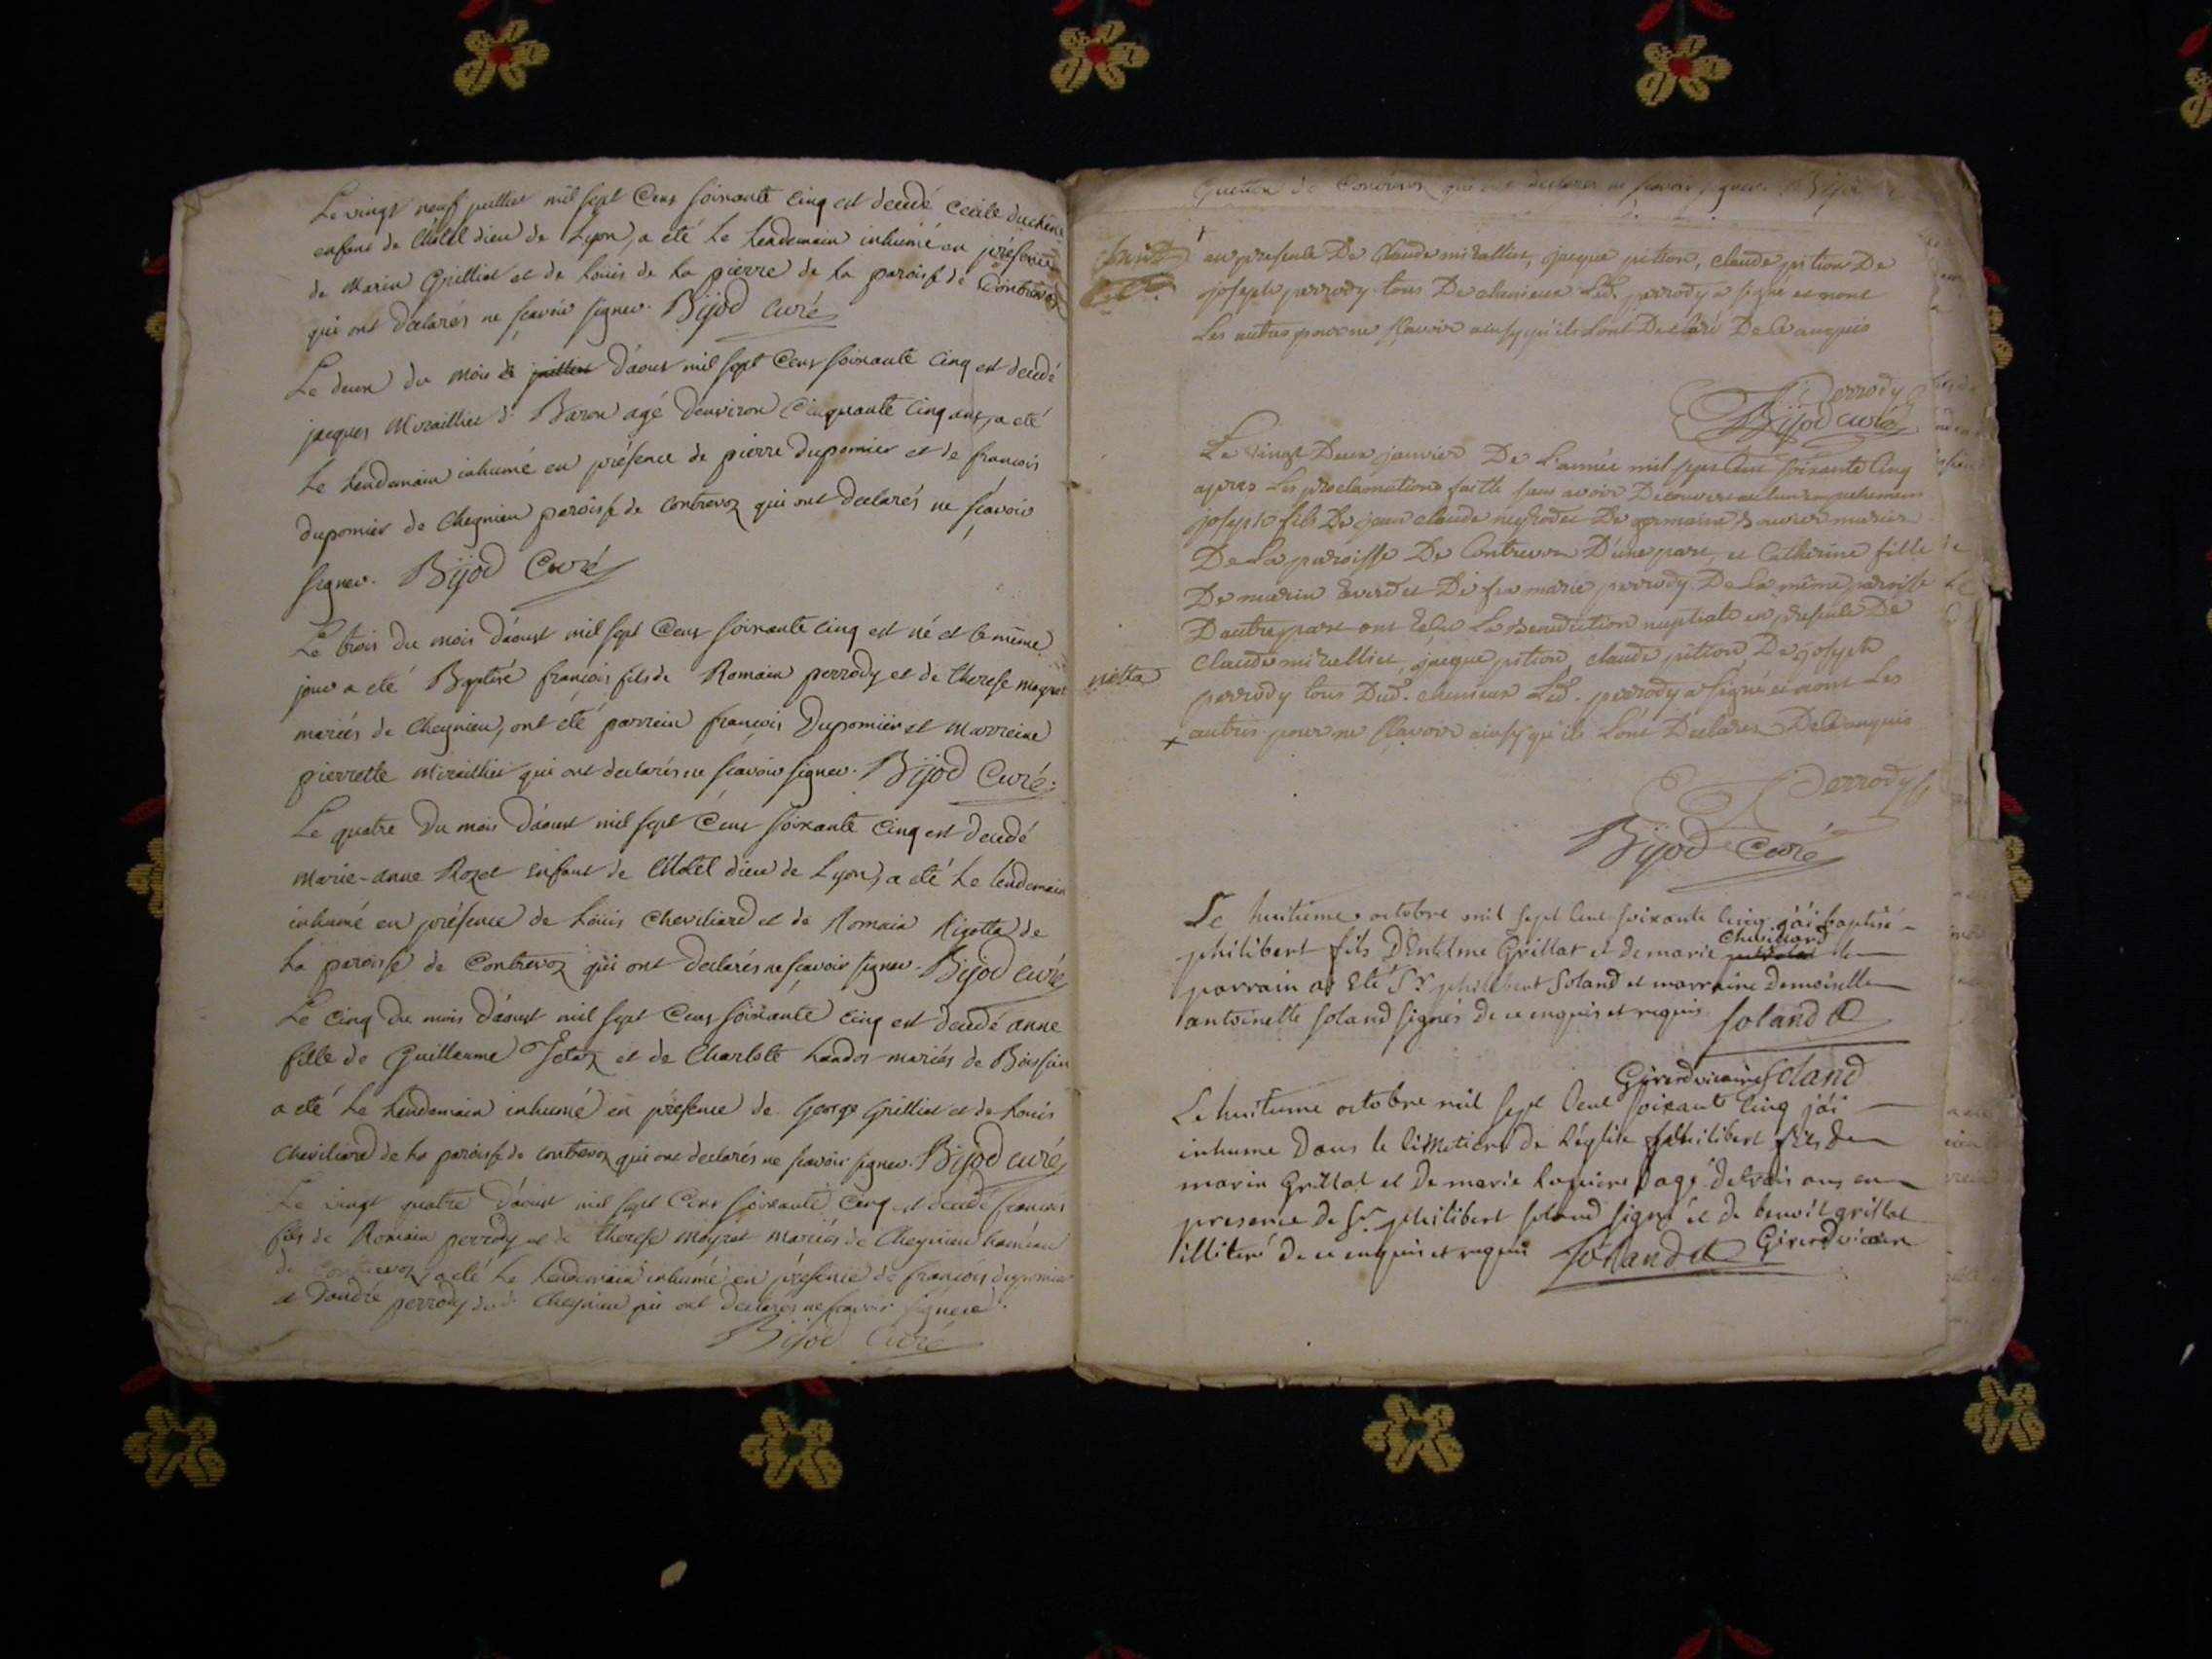 Le vingt neuf juillet mil sept Cens soixante cinq est decedé Cecile duchêne
enfant de l'hotel dieu de Lyon, a eté le lendemain inhumé en présence
de Marin Grilliet et de Loüis de la pierre de la paroisse de Contrevoz
qui ont declarés ne scavoir signer. Bijod Curé
Le deux du mois de juillet d'aoust mil sept Cens soixante cinq est decedé
jacques Miraillier Baron agé d'environ Cinquante cinq ans, a eté
le lendemain inhumé en présence de pierre dupomier et de francois
dupomier de Cheynieu paroisse de Contrevoz qui ont declarés ne scavoir
signer. Bijod Curé
Le trois du mois d'aoust mil sept Cens soixante cinq est né et le même
jour a eté Baptisé françois fils de Romain perrody et de therese meyret
mariés de Cheynieu, ont été parrein françois Dupomier et marreine
pierrette Miraillier qui ont declarés ne scavoir signer. Bijod Curé.
Le quatre du mois d'aoust mil sept Cens soixante cinq est decedé
marie-anne Rozet enfant de l'hotel dieu de Lyon, a eté le lendemain
inhumé en présence de Loüis Cheviliard et de Romain Rigottaz de
la paroisse de Contrevoz qui ont declarés ne scavoir signer. Bijod curé
Le cinq du mois d'aoust mil sept Cens soixante cinq est decedé anne
fille de Guillaume et de Charlote mariés de
a eté le lendemain inhumé en présence de George Grilliet et de Louis
Cheviliard de la paroisse de Contrevoz qui ont declarés ne scavoir signer. Bijod curé
Le vingt quatre d'aoust mil sept Cens soixante cinq est decedé francois
fils de Romain perrody et de therese meyret mariés de Cheynieu haméau
de Contrevoz a eté le lendemain inhumé en présence de françois dupomier
et d'andré perrody de Cheynieu qui ont declarés ne scavoir signer.
Bijod Curé
de Contrevoz qui ont declarez ne scavoir signer. Bijod
en presence De Claude mirallier, jacque pition, claude pition De
joseph perrody tous De cheinieux Led. perrody a signé et nont
Les autres pour ne scavoir ainsy qu'ils Lont Declaré De ce anquis
Perrody
Bijod curé
Le vingt Deux janvier De L'année mil sept cent soixante cinq
apres Les proclamations faitte sans avoir Decouvert aucun empechement
joseph fils De jean claude De germaine mariés
De La paroisse De Contrevoz D'une part, et Catherine fille
De marin et De feu marie perrody De La même paroisse
D'autre part ont La benediction nuptiale en presence De
Claude mirellier, jacque pition, claude pition De joseph
notta
perrody tous Dud. cheinieux Led. perrody a signé et nont Les
x autres pour ne scavoir ainsy qu'ils L'ont Declarez De ce anquis
Perrody
Bijod Curé
Le huitieme octobre mil sept cent soixante cinq j'ái baptisé
Chevillard
philibert fils D'Entelme Grillat et de marie de
parrain a Eté Sr. philibert Soland et marraine Demoiselle
antoinette soland signés de ce enquis et requis Soland
Girerd vicaire Soland
Le huitieme octobre mil sept cent soixante cinq j'ái
inhume dans le cimetiere de l'église philibert fils de
marin Grillat et de marie agé de trois ans en
presence de Sr. philibert soland signé et de benoit grillat
illiteré de ce enquis et requis Soland Girerd vicaire